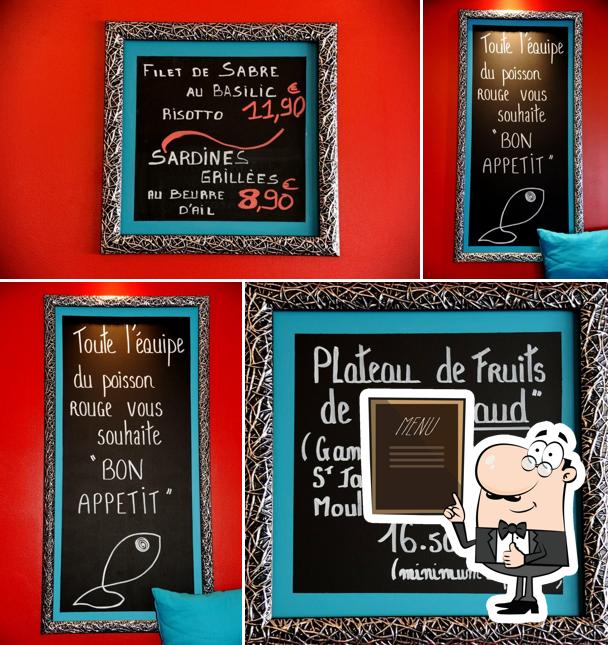 FILET DE SABRE
AU BASILIC
RISOTTO 11,90 €
SARDINES
GRILLÉES
AU BEURRE 8,90 €
D'AIL
Toute l'équipe
du poisson
ROUGE vous
souhaite
"BON
APPETIT"
Toute l'équipe
du poisson
ROUGE vous
souhaite
"BON
APPETIT"
Plateau de Fruits
de
16.50
(minimum
MENU